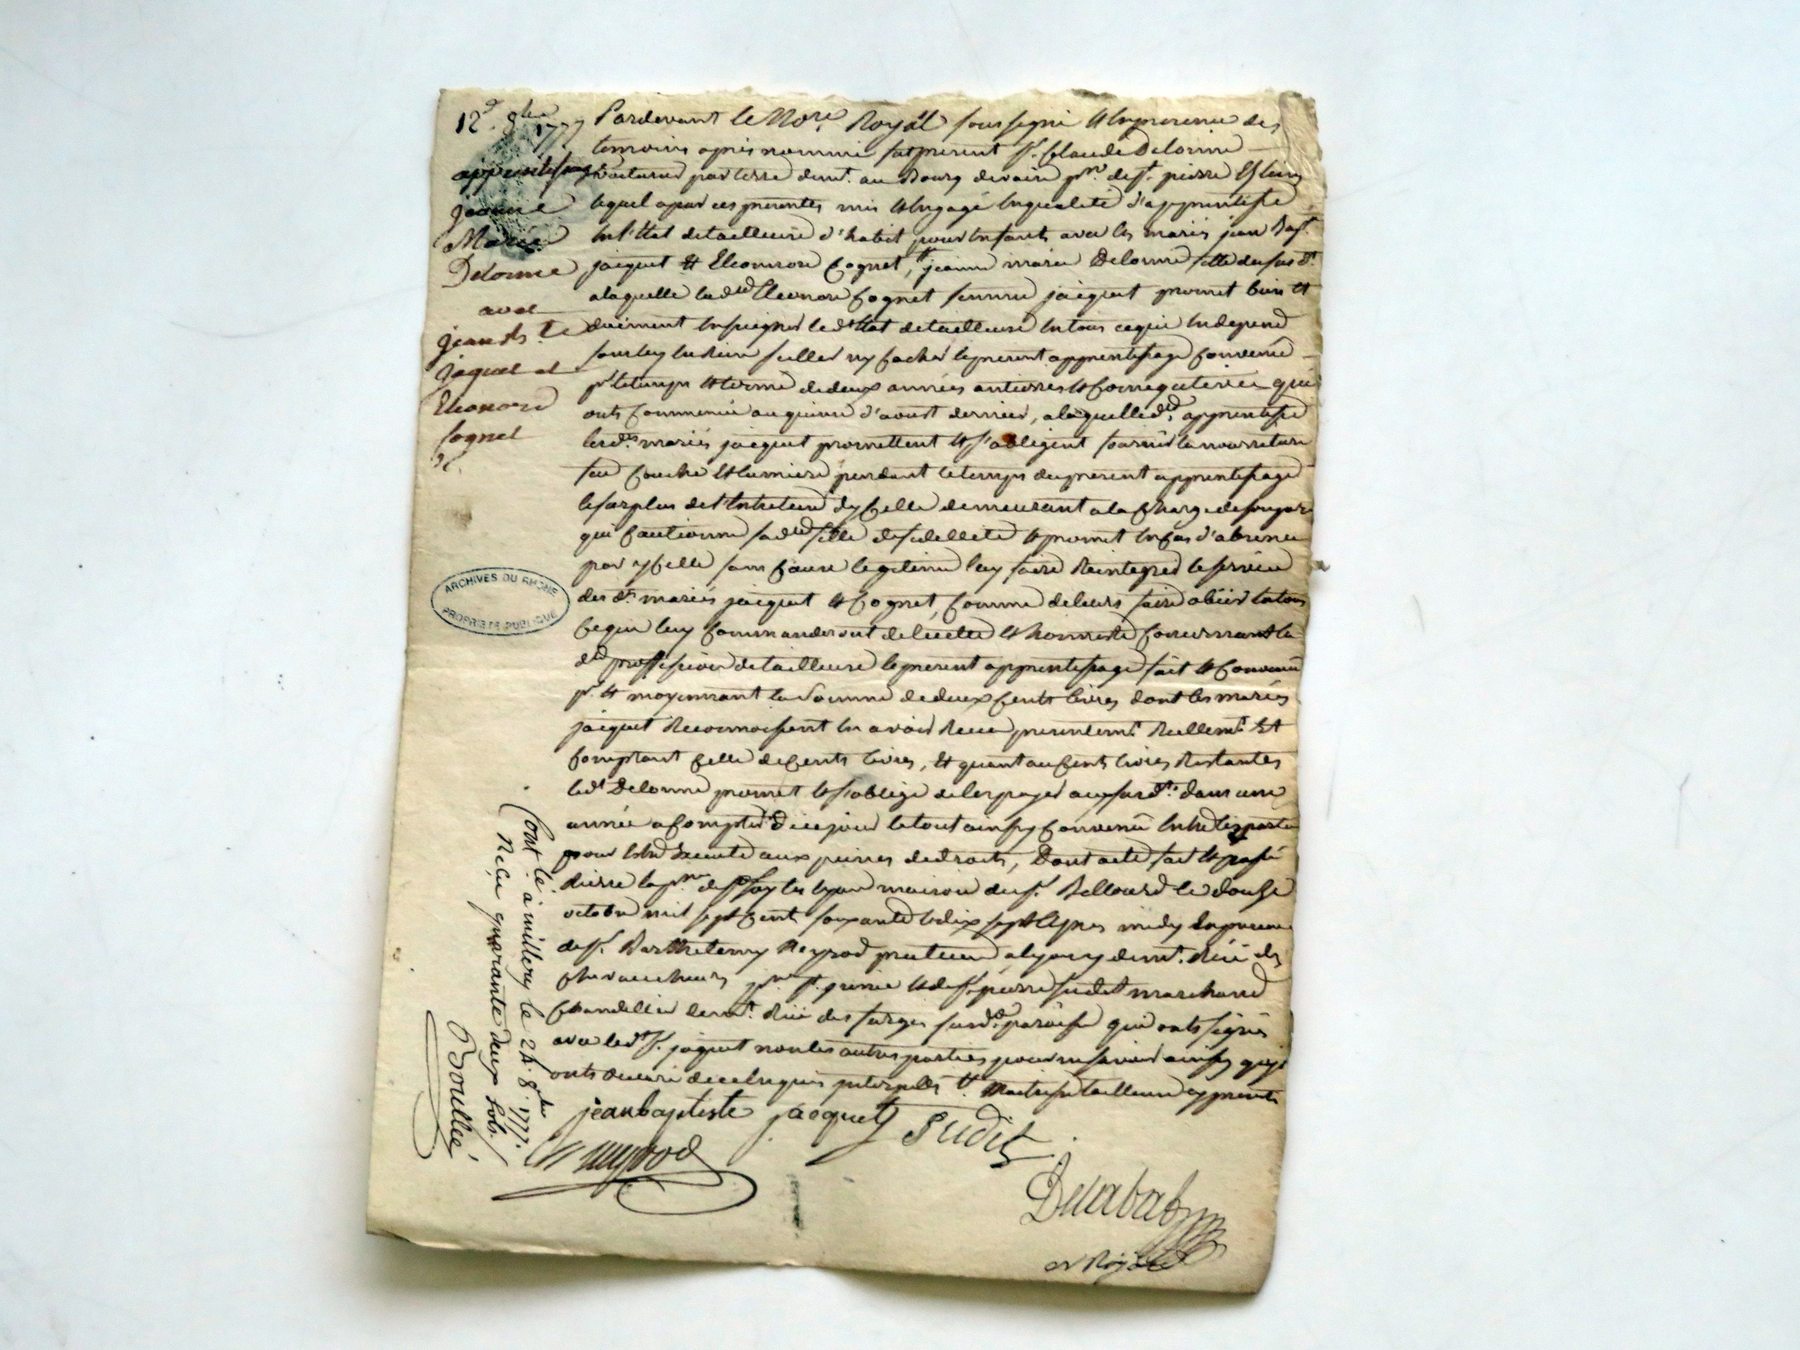 12e. 8bre 1777
apprentissage
jeanne
Marie
Delorme
avec
jean Bte
jaquet et
Eleonore
Cognet
Pardevant le Nore. Royal soussigné et en presence des
temoins apres nommés fut present sr. Claude Delorme
voiturier par terre demt. au Bourg de vaise psse. de st. pierre
lequel a par ces presentes mis et engagé en qualité d'apprentisse
en l'etat de tailleuse d'habit pour enfants avec les mariés jean Bapt.
jacquet et Eleonore Cognet, jeanne marie Delorme fille du susdt.
a laquelle lade. Eleonore Cognet femme jacquet promet bien et
duement enseigner led. etat de tailleuse en tous ce qui en depend
sans luy en rien seller ny cacher le present apprentissage convenu
pr. le temps et terme de deux années antieres et consequtives qui
onts commencé au quinze d'aoust dernier, a laquelle de. apprentisse
lesds. mariés jacquet promettent et s'obligent fournir la nourriture
feu couche et lumiere pendant le temps du present apprentissage
le surplus de l'entretien d'ycelle demeurant a la charge de son pere
qui cautionne sade. fille de fidellité et promet en cas d'absence
par ycelle sans cause legitime luy faire reintegrer le service
des ds. mariés jacquet et Cognet, comme de leurs faire obéir en tous
ce qui luy commanderont de licitte et honneste concernant la
de. proffession de tailleuse le present apprentissage fait et convenu
pr. et moyennant la somme de deux cents livres dont les mariés
jacquet reconnoissent en avoir recu presentemt. reellemt. et
comptant celle de cents livres, et quant aux cents livres restantes
led. Delorme promet et s'oblige de les payer aux susds. dans une
année a compter de ce jour le tout ainsy convenu entre les parties
pour etre executé aux peines de droits, Dont acte fait et passé
les lyon maison du sr. Billoud le douze
octobre mil sept cent soixante et dix sept apres midy en presence
de sr. Barthelemy Reyrod praticien a lyon y demt. rüe des
sr. pierre sudit marchand
Chandellier demt. rüe des farges susde. paroisse qui onts signés
avec led. sr. jaquet non les autres parties pour ne savoir ainsy qu'ils
onts declaré de ce enquis
jean baptiste jacquet Sudit
Reyrod
Delabal
nre Royal
Cont.lé à millery le 24. 8bre 1777.
Reçu quarante deux sols.
Boullée
ARCHIVES DU RHONE
PROPRIETE PUBLIQUE